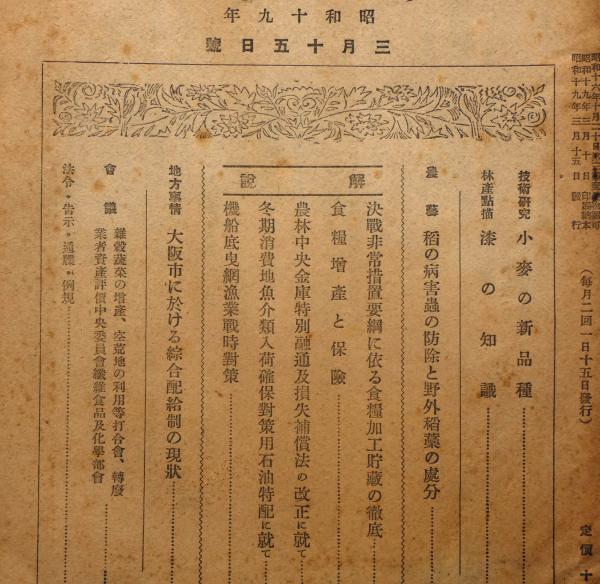 年九十和昭
號日五十月三
昭和十九年三月十日 印刷納本
昭和十九年三月十五日 發行
（每月二回一日十五日發行）
定價十
技術研究 小麥の新品種
林產點描 漆の知識
農藝 稻の病害蟲の防除と野外稻藁の處分
說解
決戰非常措置要綱に依る食糧加工貯藏の徹底
食糧增產と保險
農林中央金庫特別融通及損失補償法の改正に就て
冬期消費地魚介類入荷確保對策用石油特配に就て
機船底曳網漁業戰時對策
地方事情 大阪市に於ける綜合配給制の現狀
會議 雜穀蔬菜の增產、空荒地の利用等打合會、轉廢
業者資產評價中央委員會纖維食品及化學部會
法令・吿示・通牒・例規